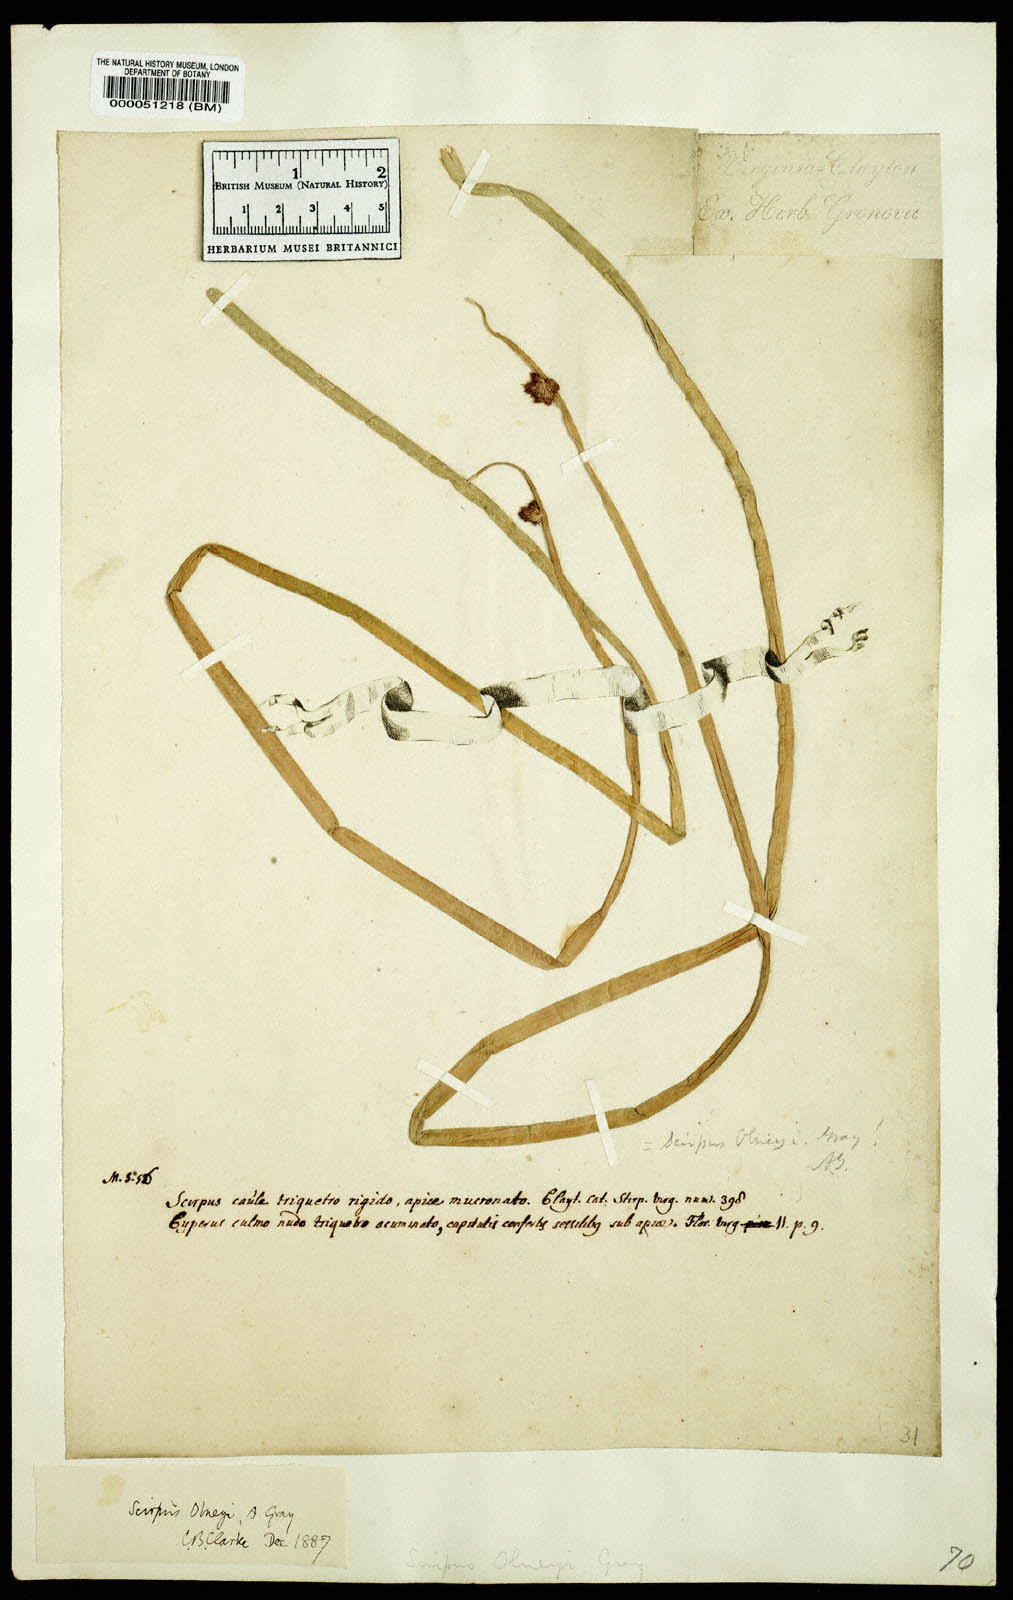 THE NATURAL HISTORY MUSEUM, LONDON
DEPARTMENT OF BOTANY
000051218 (BM)
1 2
BRITISH MUSEUM (NATURAL HISTORY)
1 2 3 4 5
HERBARIUM MUSEI BRITANNICI
Virginia - Clayton
Ex. Herb. Gronovii
= Scirpus Olneyi. Gray!
AG.
Scirpus caule triquetro rigido, apice mucronato. Clayt. Cat. Stirp. Virg. num. 398
Cyperus culmo nudo triquetro acuminato, capitulis confertis sessilibus sub apice. Flor. Virg. II. p. 9.
31
Scirpus Olneyi, A Gray
C.B.Clarke Dec. 1887
Scirpus Olneyi Gray
70